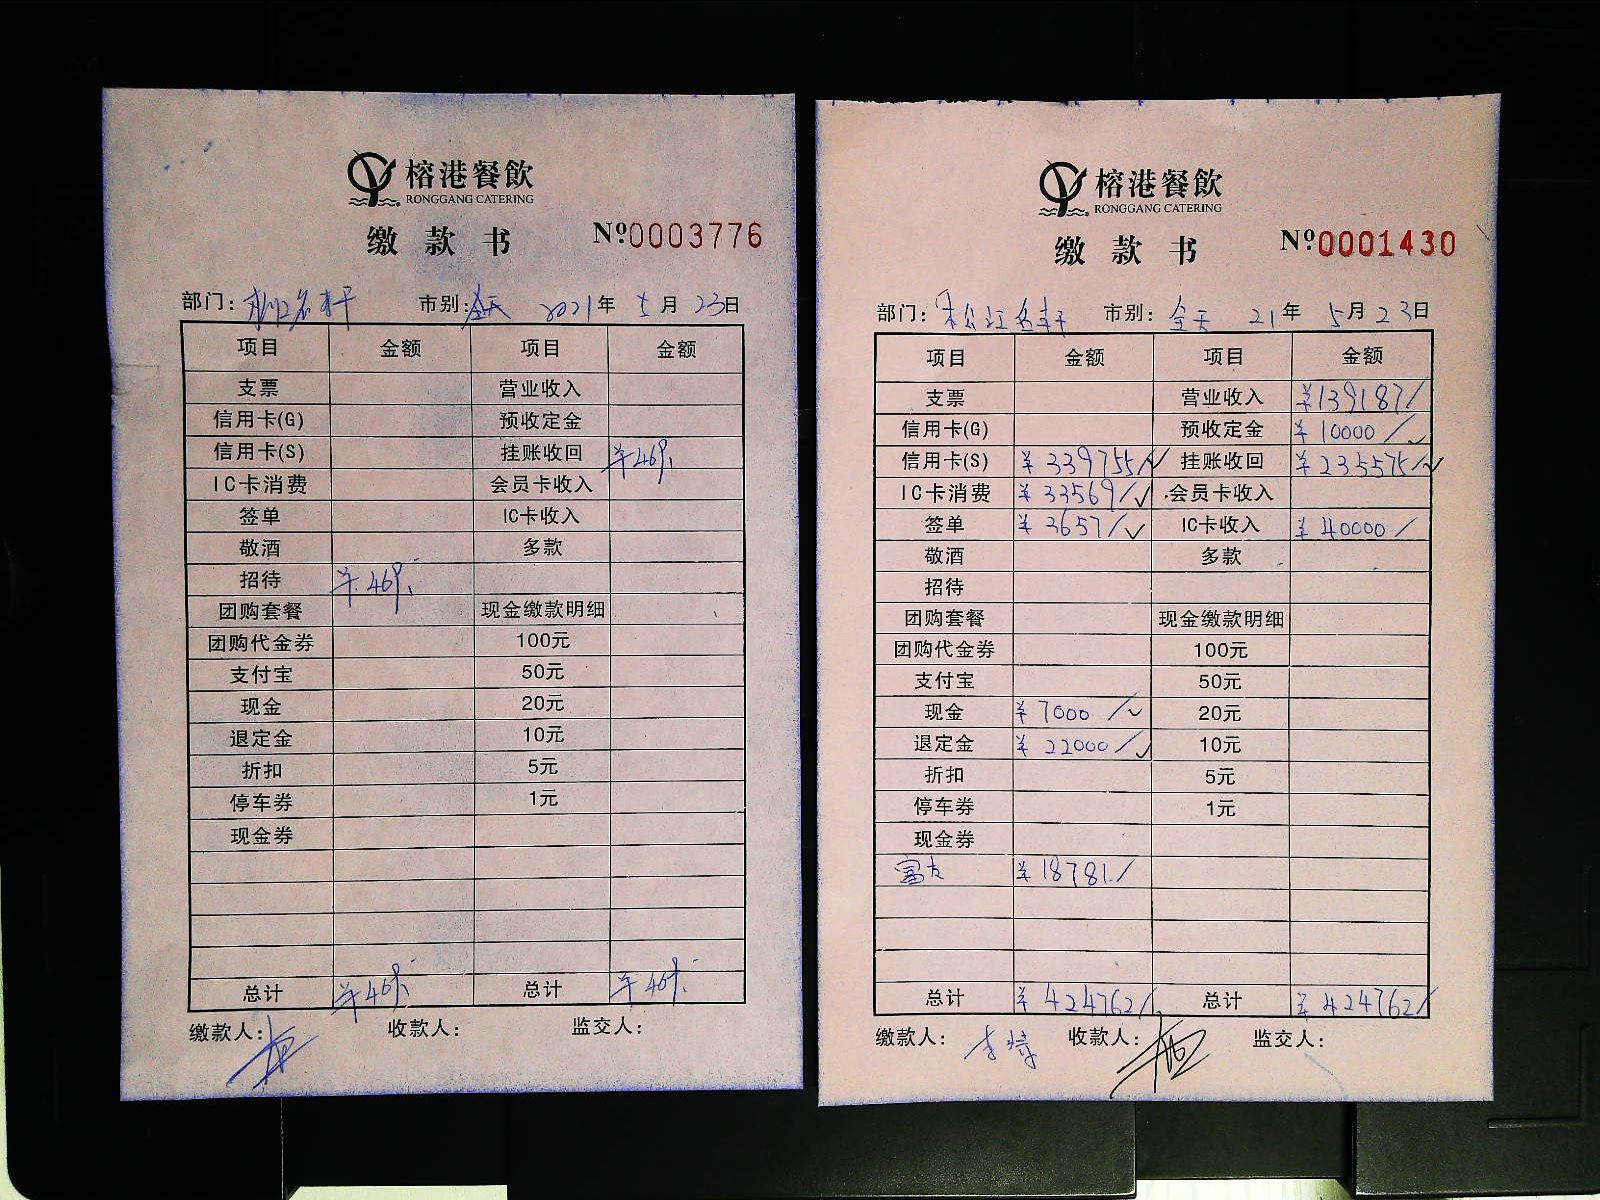 榕港餐飲
RONGGANG CATERING
缴款书 №0003776
部门: 市别:全天 2021年 5月 23日
项目 金额 项目 金额
支票 营业收入
信用卡(G) 预收定金
信用卡(S) 挂账收回
IC卡消费 会员卡收入
签单 IC卡收入
敬酒 多款
招待
团购套餐 现金缴款明细
团购代金券 100元
支付宝 50元
现金 20元
退定金 10元
折扣 5元
停车券 1元
现金券
总计 总计
缴款人: 收款人: 监交人:
榕港餐飲
RONGGANG CATERING
缴款书 №0001430
部门:松江名轩 市别:全天 21年 5月23日
项目 金额 项目 金额
支票 营业收入 ¥139187/
信用卡(G) 预收定金 ¥10000/
信用卡(S) ¥339755/ 挂账收回 ¥235575/
IC卡消费 ¥33569/ 会员卡收入
签单 ¥3657/ IC卡收入 ¥40000/
敬酒 多款
招待
团购套餐 现金缴款明细
团购代金券 100元
支付宝 50元
现金 ¥7000/ 20元
退定金 ¥22000/ 10元
折扣 5元
停车券 1元
现金券
¥18781/
总计 ¥424762/ 总计 ¥424762/
缴款人: 收款人: 监交人: